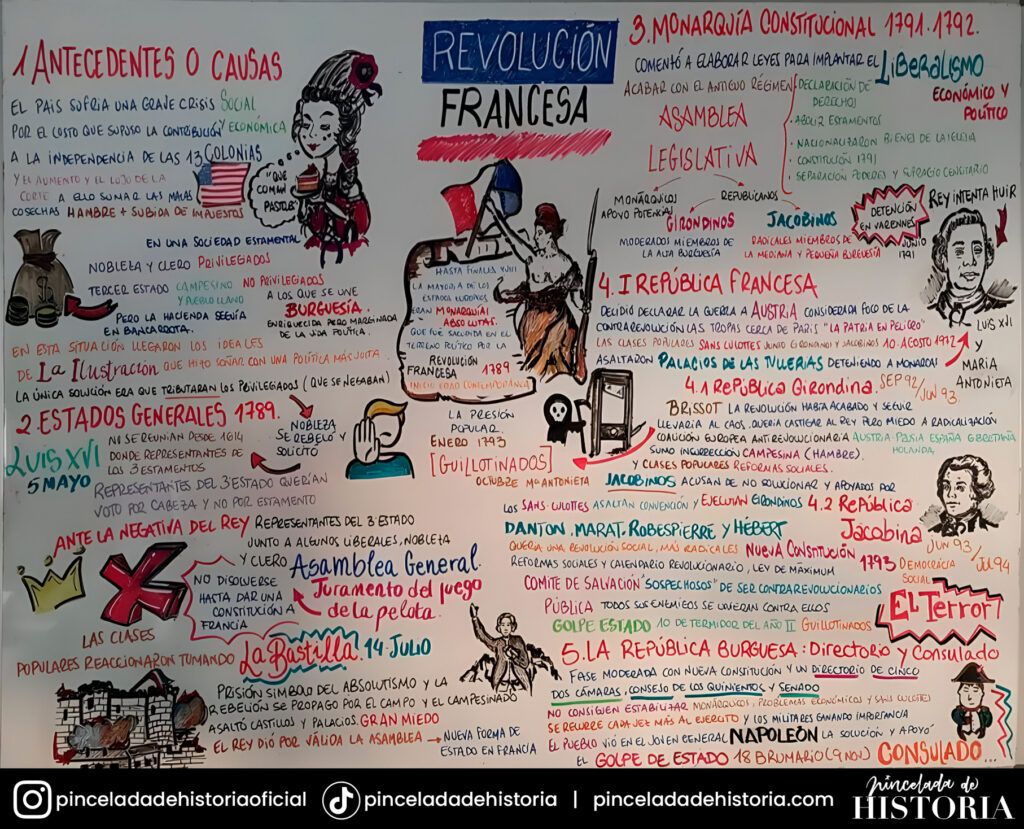 REVOLUCIÓN
FRANCESA
1 ANTECEDENTES O CAUSAS
EL PAIS SUFRIA UNA GRAVE CRISIS SOCIAL
POR EL COSTO QUE SUPUSO LA CONTRIBUCIÓN Y ECONÓMICA
A LA INDEPENDENCIA DE LAS 13 COLONIAS
Y EL AUMENTO Y EL LUJO DE LA
CORTE A ELLO SUMAR LAS MALAS
COSECHAS HAMBRE + SUBIDA DE IMPUESTOS
"QUE
COMAN
PASTELES"
EN UNA SOCIEDAD ESTAMENTAL
NOBLEZA Y CLERO PRIVILEGIADOS
TERCER ESTADO CAMPESINO NO PRIVILEGIADOS
Y PUEBLO LLANO A LOS QUE SE UNE
BURGUESÍA.
ENRIQUECIDA PERO MARGINADA
DE LA VIDA POLÍTICA
PERO LA HACIENDA SEGUÍA
EN BANCAROTA.
EN ESTA SITUACIÓN LLEGARON LOS IDEALES
DE LA ILUSTRACIÓN QUE HIZO SOÑAR CON UNA POLÍTICA MÁS JUSTA.
LA ÚNICA SOLUCIÓN ERA QUE TRIBUTARAN LOS PRIVILEGIADOS (QUE SE NEGABAN)
2. ESTADOS GENERALES 1789.
NOBLEZA
SE REBELÓ Y
SOLICITÓ
LUIS XVI
5 MAYO
NO SE REUNÍAN DESDE 1614
DONDE REPRESENTANTES DE
LOS 3 ESTAMENTOS
REPRESENTANTES DEL 3º ESTADO QUERÍAN
VOTO POR CABEZA Y NO POR ESTAMENTO
ANTE LA NEGATIVA DEL REY REPRESENTANTES DEL 3º ESTADO
JUNTO A ALGUNOS LIBERALES, NOBLEZA
Y CLERO Asamblea General.
NO DISOLVERSE
HASTA DAR UNA
CONSTITUCIÓN A
FRANCIA
Juramento del juego
de la pelota.
LAS CLASES
POPULARES REACCIONARON TUMANDO La Bastilla. 14 JULIO
PRISIÓN SIMBOLO DEL ABSOLUTISMO Y LA
REBELIÓN SE PROPAGO POR EL CAMPO Y EL CAMPESINADO
ASALTÓ CASTILLOS Y PALACIOS. GRAN MIEDO
EL REY DIÓ POR VÁLIDA LA ASAMBLEA → NUEVA FORMA DE
ESTADO EN FRANCIA
HASTA FINALES XVIII
LA MAYORÍA DE LOS
ESTADOS EUROPEOS
ERAN MONARQUÍAS
ABSOLUTAS.
QUE FUE SACUDIDA EN EL
TERRENO POLÍTICO POR LA
REVOLUCIÓN
FRANCESA 1789
INICIO EDAD CONTEMPORÁNEA
LA PRESIÓN
POPULAR.
ENERO 1793
[GUILLOTINADOS]
OCTUBRE Mª ANTONIETA
3. MONARQUÍA CONSTITUCIONAL 1791-1792.
COMENTÓ A ELABORAR LEYES PARA IMPLANTAR EL LIBERALISMO
ECONÓMICO Y
POLÍTICO
ACABAR CON EL ANTIGUO RÉGIMEN
DECLARACIÓN DE
DERECHOS
• ABOLIR ESTAMENTOS
• NACIONALIZARON BIENES DE LA IGLESIA
• CONSTITUCIÓN 1791
• SEPARACIÓN PODERES Y SUFRAGIO CENSITARIO
ASAMBLEA
LEGISLATIVA
MONÁRQUICOS
APOYO POTENCIAL
REPUBLICANOS
GIRONDINOS
MODERADOS MIEMBROS DE
LA ALTA BURGUESÍA
JACOBINOS
RADICALES MIEMBROS DE
LA MEDIANA Y PEQUEÑA BURGUESÍA
DETENCIÓN
EN VARENNES
REY INTENTA HUIR
JUNIO
1791
LUIS XVI
Y
MARIA
ANTONIETA
4. I REPÚBLICA FRANCESA
DECIDIÓ DECLARAR LA GUERRA A AUSTRIA CONSIDERADA FOCO DE LA
CONTRAREVOLUCIÓN LAS TROPAS CERCA DE PARIS "LA PATRIA EN PELIGRO"
LAS CLASES POPULARES SANS CULOTTES JUNTO GIRONDINOS Y JACOBINOS 10 AGOSTO 1792
ASALTARON PALACIOS DE LAS TULLERIAS DETENIENDO A MONARCAS
4.1 REPÚBLICA GIRONDINA. SEP 92/JUN 93
BRISSOT LA REVOLUCIÓN HABÍA ACABADO Y SEGUIR
LLEVARIA AL CAOS. QUERIA CASTIGAR AL REY PERO MIEDO A RADICALIZACIÓN
COALICIÓN EUROPEA ANTIREVOLUCIONARIA AUSTRIA-PRUSIA ESPAÑA G. BRETAÑA
HOLANDA.
SUMO INSURRECCIÓN CAMPESINA (HAMBRE).
Y CLASES POPULARES REFORMAS SOCIALES.
JACOBINOS ACUSAN DE NO SOLUCIONAR Y APOYADOS POR
LOS SANS-CULOTTES ASALTAN CONVENCIÓN Y EJECUTAN GIRONDINOS
4.2 REPÚBLICA
Jacobina
JUN 93/JUL 94
DANTON, MARAT, ROBESPIERRE Y HÉBERT
QUERÍA UNA REVOLUCIÓN SOCIAL, MAS RADICALES NUEVA CONSTITUCIÓN
1793 DEMOCRACIA
SOCIAL
REFORMAS SOCIALES Y CALENDARIO REVOLUCIONARIO, LEY DE MÁXIMUM
COMITE DE SALVACIÓN "SOSPECHOSOS" DE SER CONTRAREVOLUCIONARIOS
PÚBLICA TODOS SUS ENEMIGOS SE UNIERAN CONTRA ELLOS
EL TERROR
GOLPE ESTADO 10 DE TERMIDOR DEL AÑO II GUILLOTINADOS
5. LA REPÚBLICA BURGUESA: Directorio y Consulado
FASE MODERADA CON NUEVA CONSTITUCIÓN Y UN DIRECTORIO DE CINCO
DOS CÁMARAS, CONSEJO DE LOS QUINIENTOS Y SENADO
NO CONSIGUEN ESTABILIZAR MONÁRQUICOS, PROBLEMAS ECONÓMICOS Y SANS CULOTTES
SE RECURRE CADA VEZ MÁS AL EJERCITO Y LOS MILITARES GANANDO IMPORTANCIA
EL PUEBLO VIÓ EN EL JOVEN GENERAL NAPOLEÓN LA SOLUCIÓN Y APOYÓ
EL GOLPE DE ESTADO 18 BRUMARIO (9 NOV) CONSULADO...
pinceladadehistoriaoficial pinceladadehistoria | pinceladadehistoria.com
pincelada de
HISTORIA